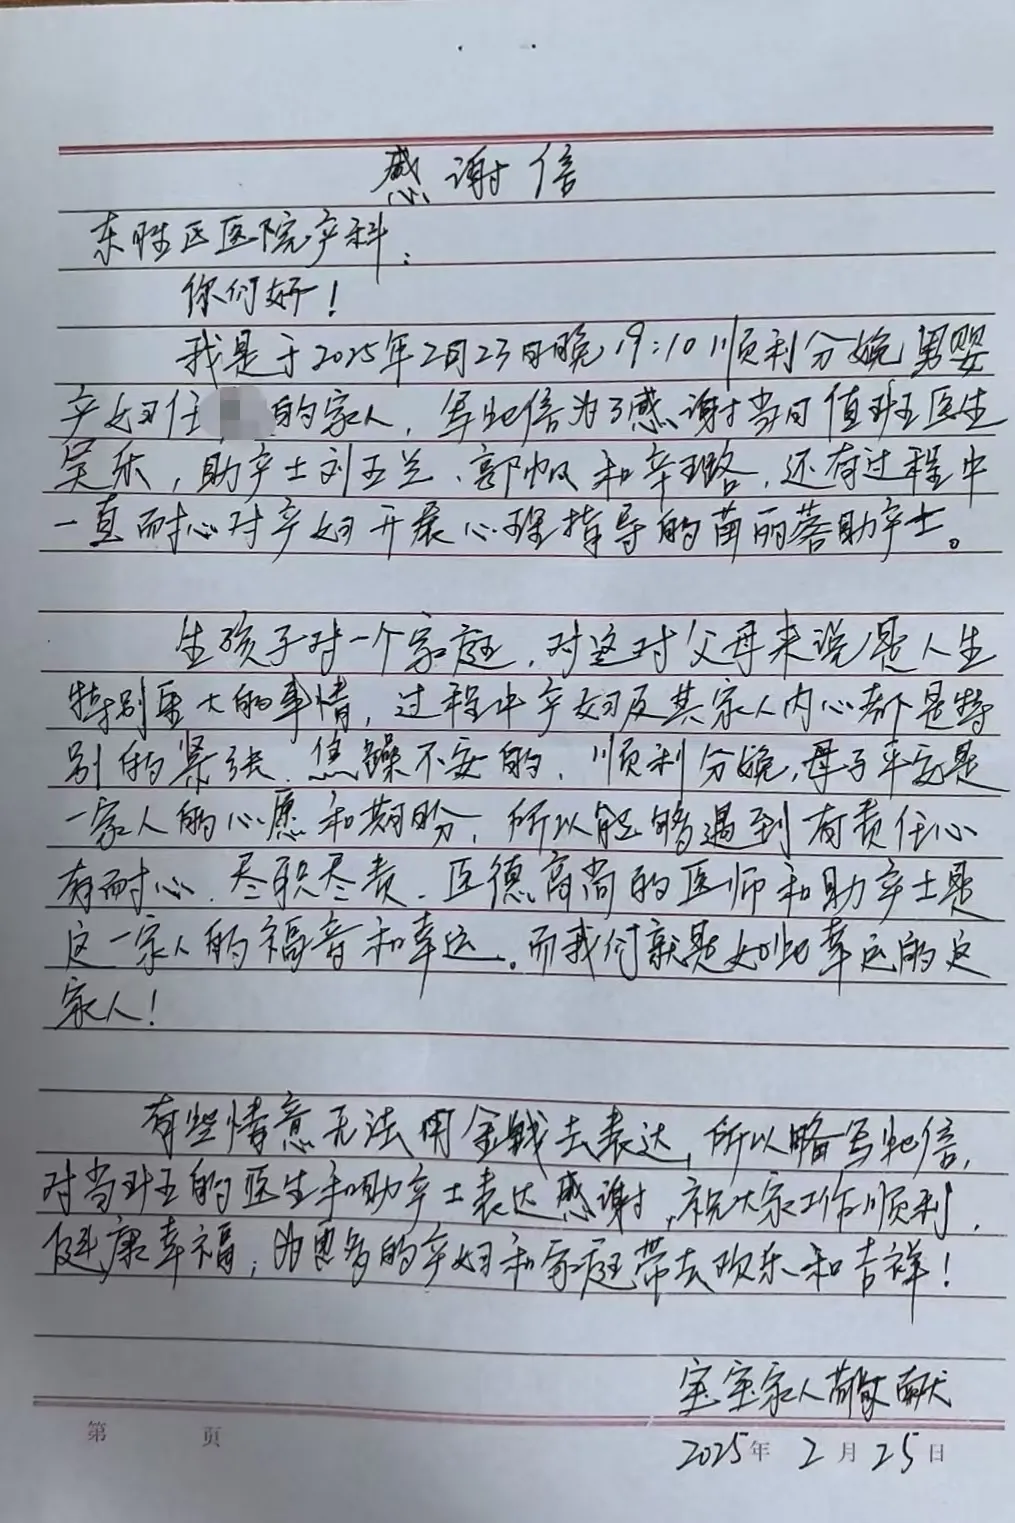 感谢信
东胜区医院产科：
你们好！
我是于2025年2月23日晚19:10顺利分娩男婴
产妇任 的家人，写此信为了感谢当日值班医生
吴乐，助产士刘玉兰、郭帆和辛璐，还有过程中
一直耐心对产妇开展心理指导的苗丽蓉助产士。
生孩子对一个家庭，对这对父母来说是人生
特别重大的事情，过程中产妇及其家人内心都是特
别的紧张、焦躁不安的，顺利分娩，母子平安是
一家人的心愿和期盼，所以能够遇到有责任心
有耐心、尽职尽责、医德高尚的医师和助产士是
这一家人的福音和幸运。而我们就是如此幸运的这
家人！
有些情意无法用金钱去表达，所以略写此信，
对当班的医生和助产士表达感谢，祝大家工作顺利，
健康幸福，为更多的产妇和家庭带去欢乐和吉祥！
宝宝家人敬献
2025年2月25日
第 页